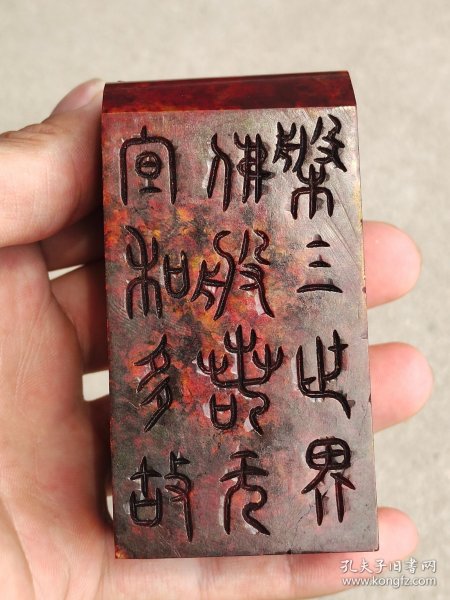 槃三世界
佛般若无
和多故
孔夫子旧书网
www.kongfz.com